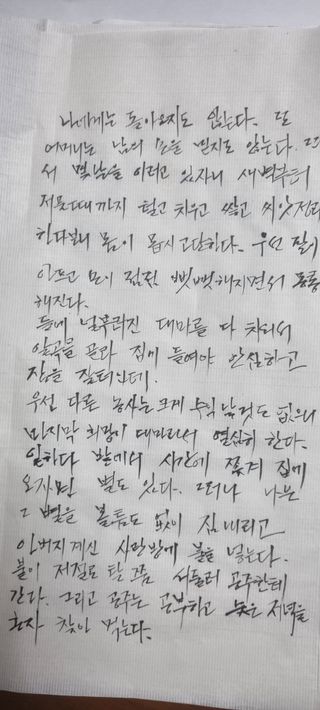 나에게는 돌아오지도 않는다. 또
어머니는 남의 손을 믿지도 않는다. 그래
서 몇날을 이러고 있자니 새벽부터
저뭇때까지 털고 치우고 쌓고 씨앗정리
하다보니 몸이 몹시 고단하다. 우선 팔이
아프고 손이 점점 뻣뻣해지면서 퉁퉁
해진다.
들에 널부러진 대마를 다 치워서
알곡을 골라 집에 들여야 안심하고
잠을 잘터인데.
우선 다른 농사는 크게 수입 날것도 없으니
마지막 희망이 대마라서 열심히 한다.
일하다 밭에서 시간에 쫓겨 집에
오자면 별도 있다. 그러나 나는
그 별을 볼틈도 없이 짐 내리고
아버지계신 사랑방에 불을 넣는다.
불이 저절로 탈 쯤 서둘러 공주한테
간다. 그리고 공주는 공부하고 늦은 저녁을
혼자 찾아 먹는다.